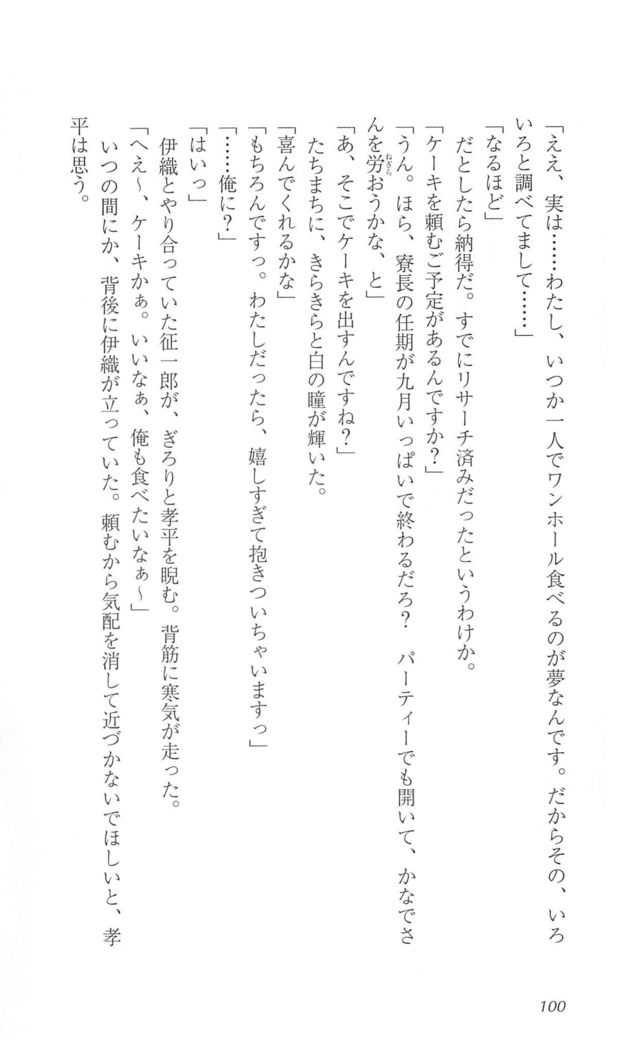 「ええ、実は……わたし、いつか一人でワンホール食べるのが夢なんです。だからその、いろ
いろと調べてまして……」
「なるほど」
だとしたら納得だ。すでにリサーチ済みだったというわけか。
「ケーキを頼むご予定があるんですか？」
「うん。ほら、寮長の任期が九月いっぱいで終わるだろ？　パーティーでも開いて、かなでさ
んを労おうかな、と」
ねぎら
「あ、そこでケーキを出すんですね？」
たちまちに、きらきらと白の瞳が輝いた。
「喜んでくれるかな」
「もちろんですっ。わたしだったら、嬉しすぎて抱きついちゃいますっ」
「……俺に？」
「はいっ」
伊織とやり合っていた征一郎が、ぎろりと孝平を睨む。背筋に寒気が走った。
「へえ～、ケーキかぁ。いいなぁ、俺も食べたいなぁ～」
いつの間にか、背後に伊織が立っていた。頼むから気配を消して近づかないでほしいと、孝
平は思う。
100